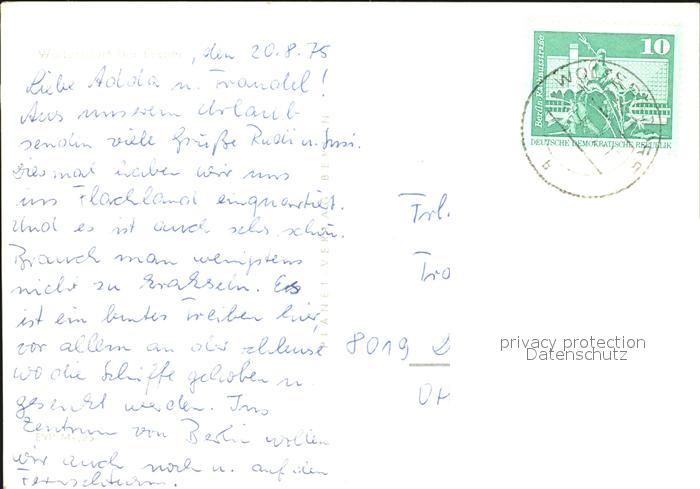 Woltersdorf bei Erkner, den 20.8.75
Liebe Adda u. Frandel!
Aus unserem Urlaub
senden viele Grüße Rudi u. Susi.
Diesmal haben wir uns
im Flachland einquartiert.
Und es ist auch sehr schön.
Brauch man wenigstens
nicht zu kraxseln. Es
ist ein buntes Treiben hier,
vor allem an der Schleuse
wo die Schiffe gehoben u.
gesenkt werden. Ins
Zentrum von Berlin wollen
wir auch noch u. auf den
Fernsehturm.
PLANET VERLAG BERLIN
EVP M
Frl.
Tro
8019 D
10
Berlin Rathausstraße
DEUTSCHE DEMOKRATISCHE REPUBLIK
WOLTERSD
privacy protection
Datenschutz